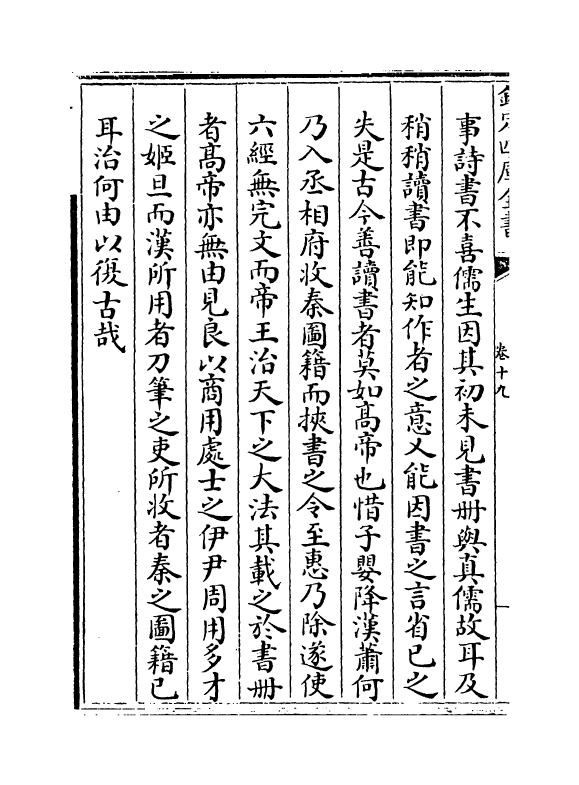 欽定四庫全書
卷十九
事詩書不喜儒生因其初未見書册與真儒故耳及
稍稍讀書即能知作者之意又能因書之言省已之
失是古今善讀書者莫如髙帝也惜子嬰降漢蕭何
乃入丞相府收秦圖籍而挾書之令至惠乃除遂使
六經無完文而帝王治天下之大法其載之於書册
者髙帝亦無由見良以商用處士之伊尹周用多才
之姬旦而漢所用者刀筆之吏所收者秦之圖籍已
耳治何由以復古哉